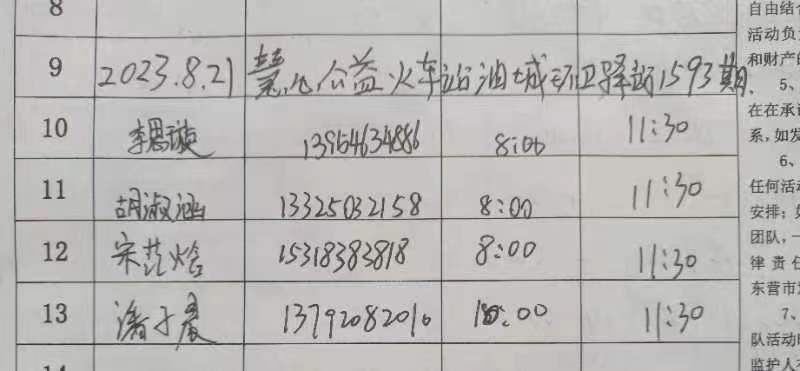 8
自由结合
活动负
和财产的
9 2023.8.21 慧心公益火车站油城环卫驿站1593期
5、
在在承诺
系,如发
10 李思璇 13954634886 8:00 11:30
6、
任何活动
安排;
11 胡淑涵 13325032158 8:00 11:30
团队,一
律责任
12 宋范焓 15318383818 8:00 11:30
东营市
13 潘子晨 13792082016 10:00 11:30
7、
队活动
监护人